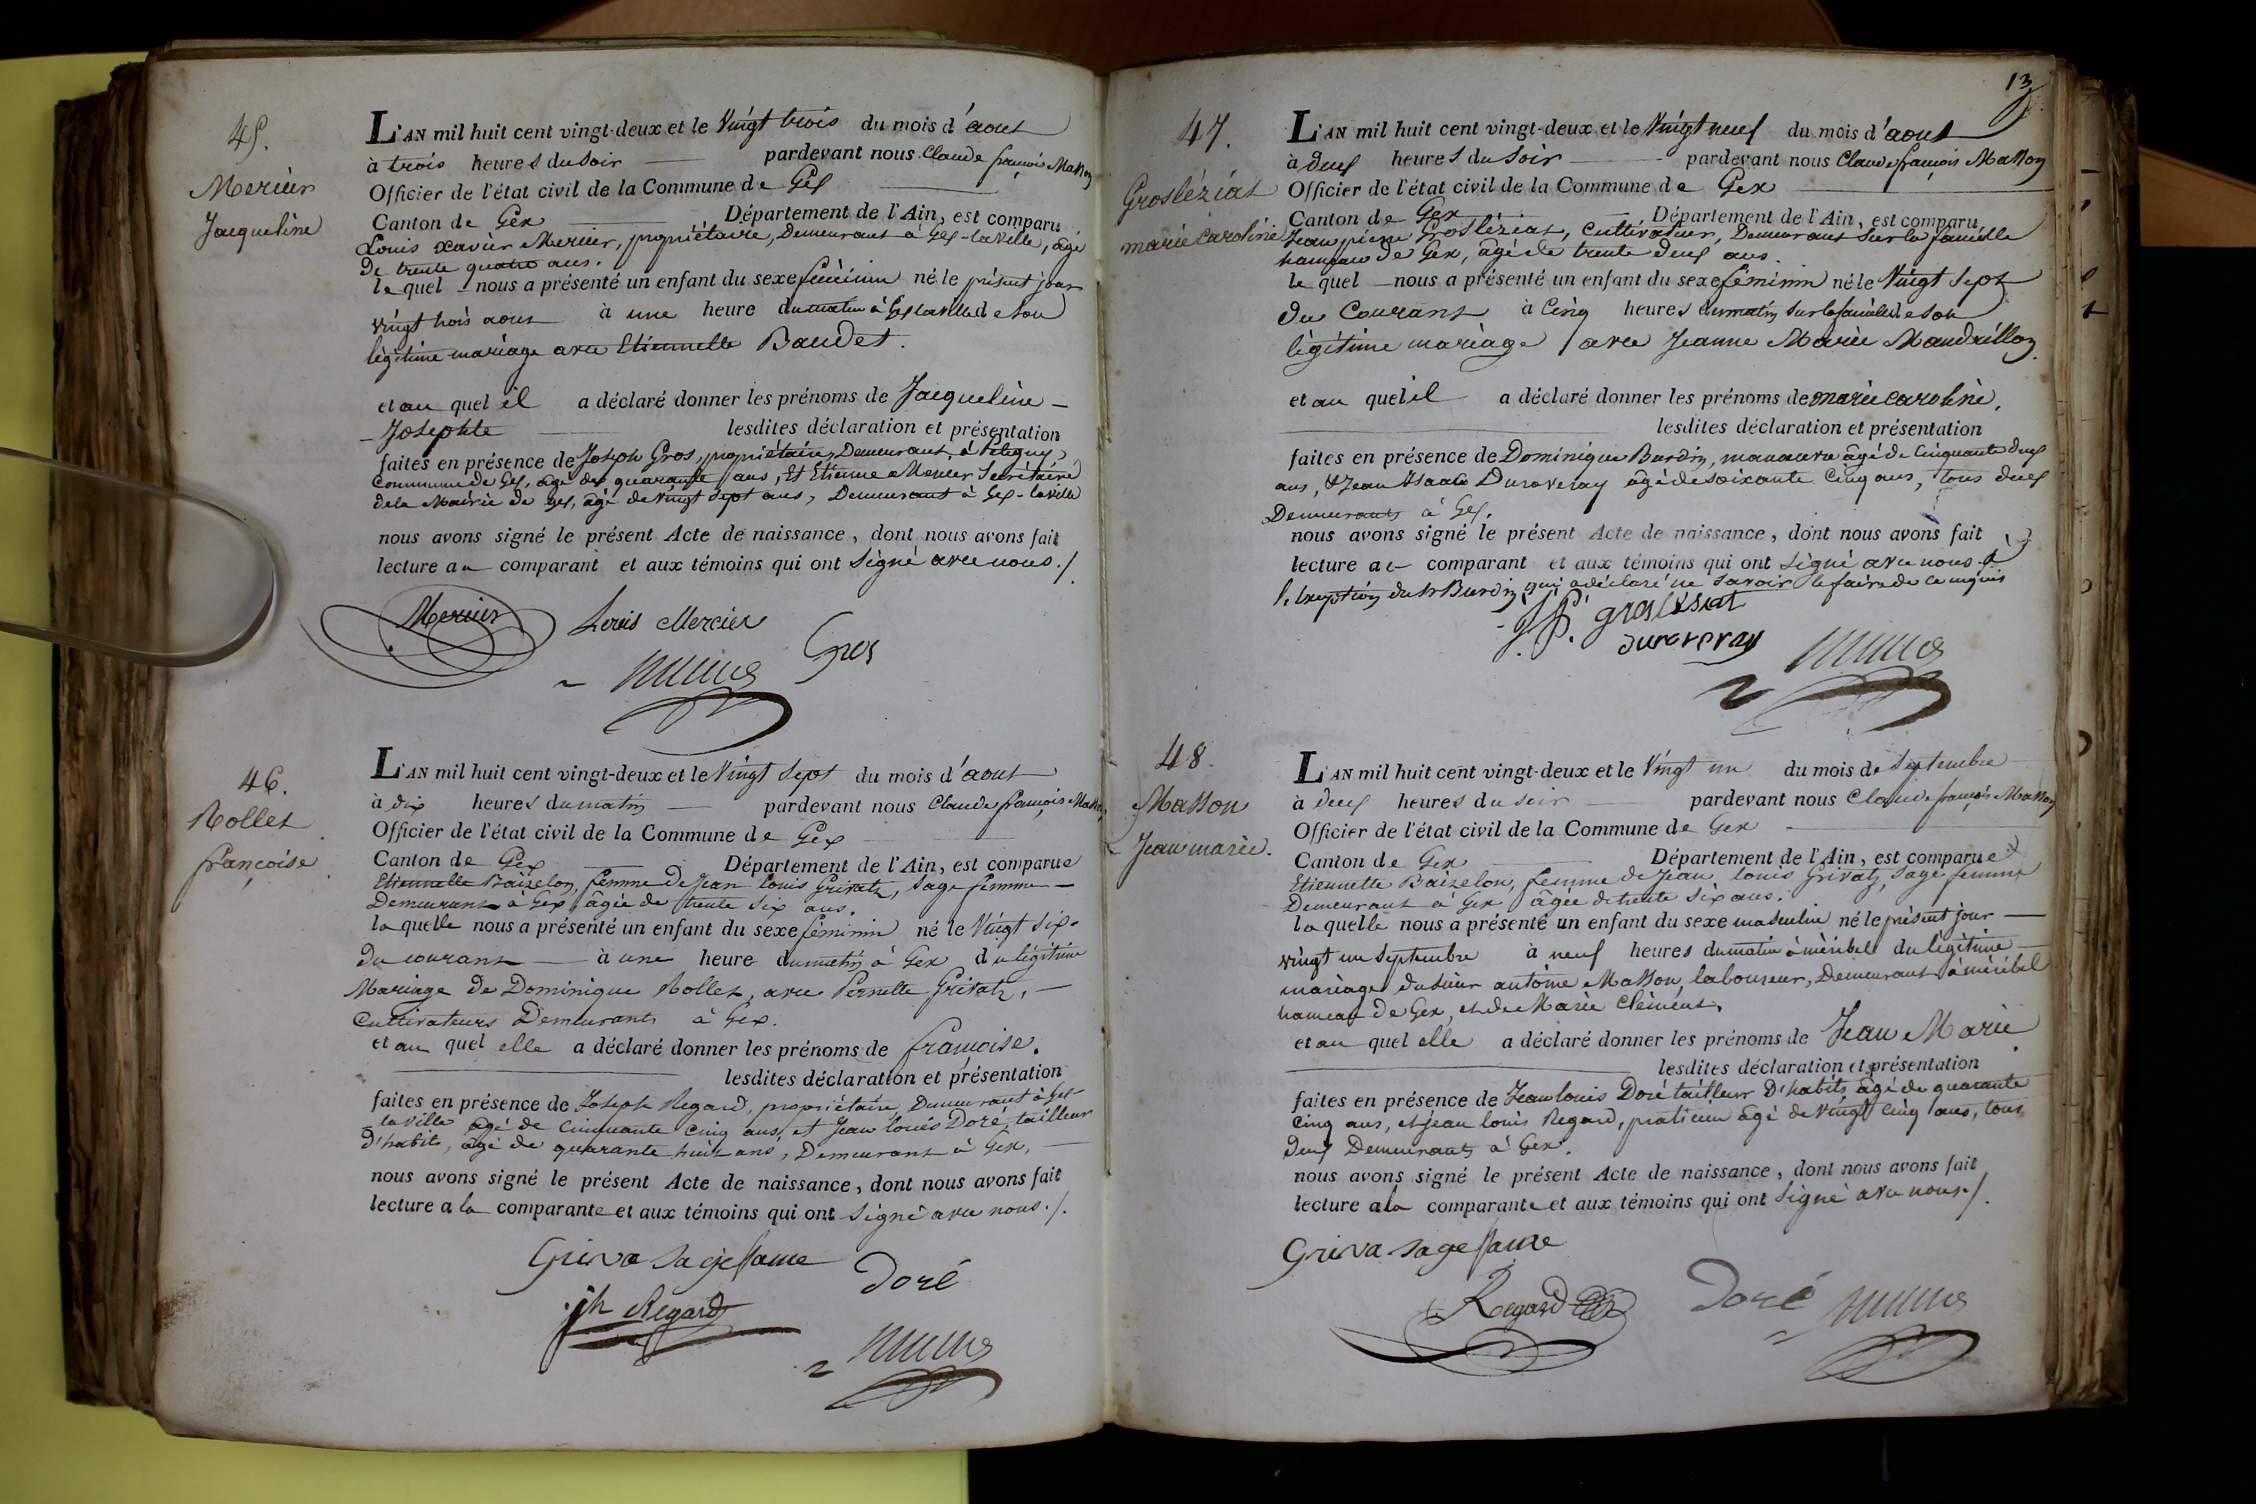 45.
Mercier
Jacqueline
L'AN mil huit cent vingt-deux et le Vingt trois du mois d'aout
à trois heures du soir pardevant nous Claude françois Masson
Officier de l'état civil de la Commune de Gex
Canton de Gex Département de l'Ain, est comparu
Louis xavier Mercier, propriétaire, Demeurant à Gex-la ville, âgé
de trente quatre ans.
le quel nous a présenté un enfant du sexe féminin né le présent jour
vingt trois aout à une heure du matin à Gex la ville de son
légitime mariage avec Etiennette Baudet.
et au quel il a déclaré donner les prénoms de Jacqueline
Josephte lesdites déclaration et présentation
faites en présence de Joseph Gros, propriétaire, Demeurant à
Commune de Gex, âgé de quarante ans, Et Etienne Mercier Secrétaire
de la Mairie de Gex, âgé de vingt sept ans, Demeurant à Gex-la ville
nous avons signé le présent Acte de naissance, dont nous avons fait
lecture au comparant et aux témoins qui ont signé avec nous./.
Mercier Louis Mercier
Gros
46.
Rollet
françoise
L'AN mil huit cent vingt-deux et le Vingt sept du mois d'aout
à dix heures du matin pardevant nous Claude françois Masson
Officier de l'état civil de la Commune de Gex
Canton de Gex Département de l'Ain, est comparue
Etiennette Baizelon, femme de Jean louis Grivatz, sage femme
Demeurant à Gex, âgée de trente six ans.
la quelle nous a présenté un enfant du sexe féminin né le Vingt six
du courant à une heure du matin à Gex du légitime
Mariage de Dominique Rollet, avec Pernette Grivatz,
Cultivateurs Demeurants à Gex.
et au quel elle a déclaré donner les prénoms de françoise.
lesdites déclaration et présentation
faites en présence de Joseph Regard, propriétaire Demeurant à Gex
la ville âgé de Cinquante Cinq ans, et Jean louis Doré, tailleur
d'habits, âgé de quarante huit ans, Demeurant à Gex,
nous avons signé le présent Acte de naissance, dont nous avons fait
lecture a la comparante et aux témoins qui ont signé avec nous./.
Griva sageffame Doré
jh Regard
13
47.
Grosléziat
marie caroline
L'AN mil huit cent vingt-deux et le Vingt neuf du mois d'aout
à deux heures du soir pardevant nous Claude françois Masson
Officier de l'état civil de la Commune de Gex
Canton de Gex Département de l'Ain, est comparu,
Jean pierre Grosléziat, Cultivateur, Demeurant sur la faucille
hameau de Gex, âgé de trente deux ans.
le quel nous a présenté un enfant du sexe féminin né le Vingt sept
du Courant à Cinq heures du matin sur la faucille de son
légitime mariage avec Jeanne Marie Mandrillon
et au quel il a déclaré donner les prénoms de marie caroline,
lesdites déclaration et présentation
faites en présence de Dominique Burdin, manœuvre âgé de Cinquante deux
ans, & Jean Isaac Duroveray âgé de soixante Cinq ans, tous deux
Demeurants à Gex.
nous avons signé le présent Acte de naissance, dont nous avons fait
lecture au comparant et aux témoins qui ont signé avec nous à
l'exception du Sr Burdin qui a déclaré ne savoir le faire de ce requis
J.P. groslésiat
duroveray
48.
Masson
Jean marie.
L'AN mil huit cent vingt-deux et le Vingt un du mois de septembre
à deux heures du soir pardevant nous Claude françois Masson
Officier de l'état civil de la Commune de Gex
Canton de Gex Département de l'Ain, est comparue
Etiennette Baizelon, femme de Jean louis Grivatz, sage femme
Demeurant à Gex âgée de trente six ans.
la quelle nous a présenté un enfant du sexe masculin né le présent jour
vingt un septembre à neuf heures du matin à méribel du légitime
mariage du sieur antoine Masson, laboureur, Demeurant à méribel
hameau de Gex, et de Marie Clément.
et au quel elle a déclaré donner les prénoms de Jean Marie
lesdites déclaration et présentation
faites en présence de Jean louis Doré tailleur d'habits âgé de quarante
Cinq ans, et Jean louis Regard, praticien âgé de vingt Cinq ans, tous
deux Demeurants à Gex.
nous avons signé le présent Acte de naissance, dont nous avons fait
lecture a la comparante et aux témoins qui ont signé avec nous./.
Griva sageffame
Regard Doré